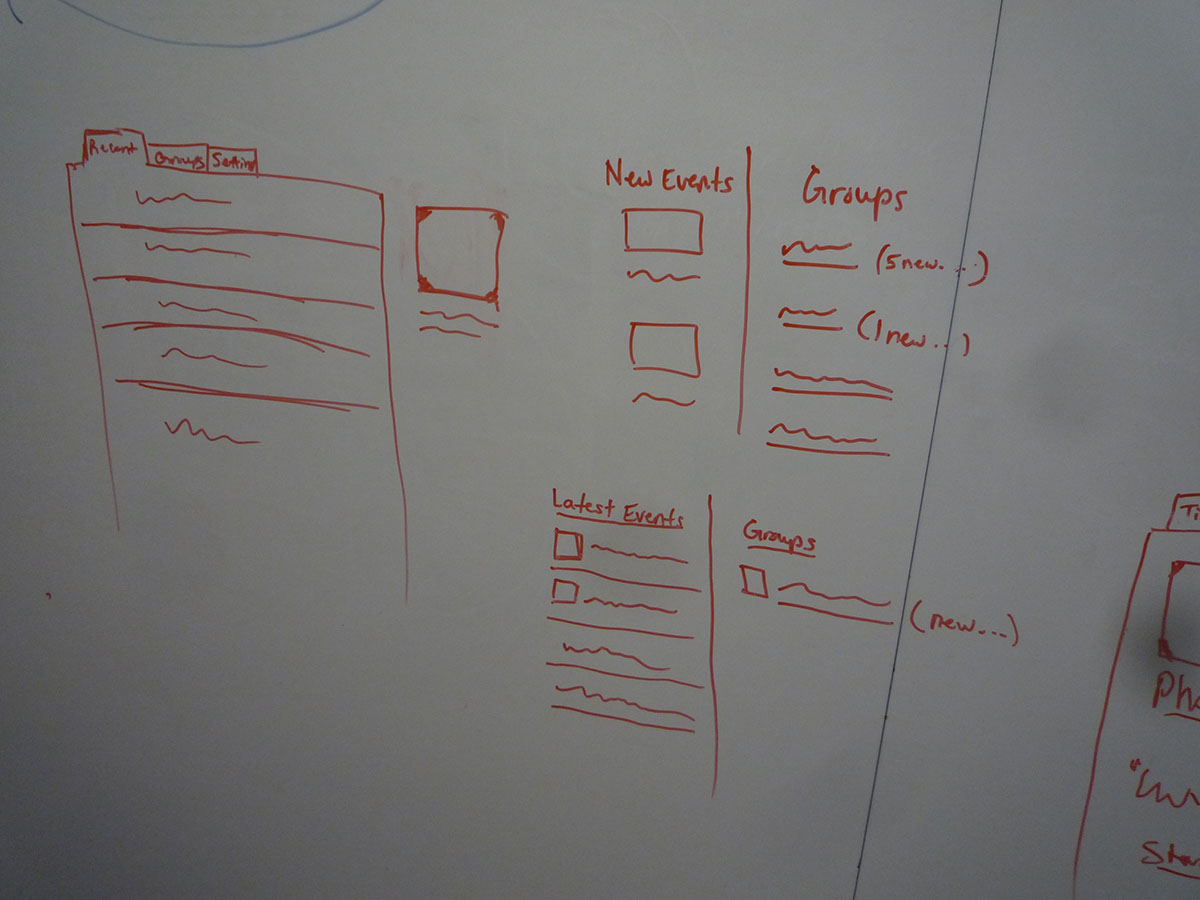 Recent Groups Setting
New Events
Groups
(5 new...)
(1 new...)
Latest Events
Groups
(new...)